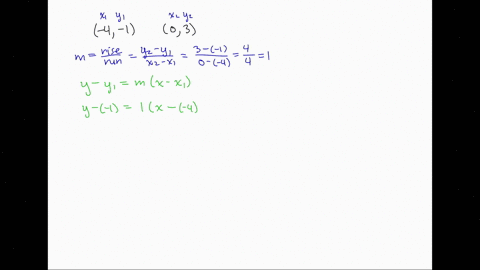 x₁ y₁ x₂ y₂
(-4, -1) (0, 3)
m = rise/run = y₂-y₁/x₂-x₁ = 3-(-1)/0-(-4) = 4/4 = 1
y - y₁ = m (x - x₁)
y - (-1) = 1 (x - (-4)